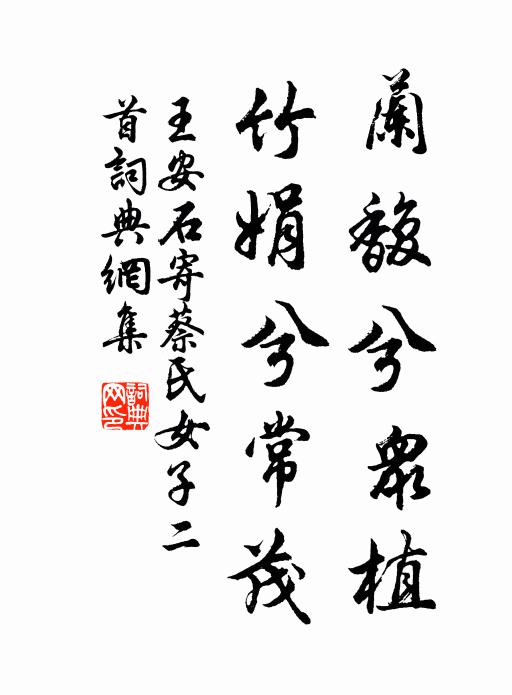 蘭馥兮衆植
竹娟兮常茂
王安石寄蔡氏女子二
首詞典網集
詞典
网印